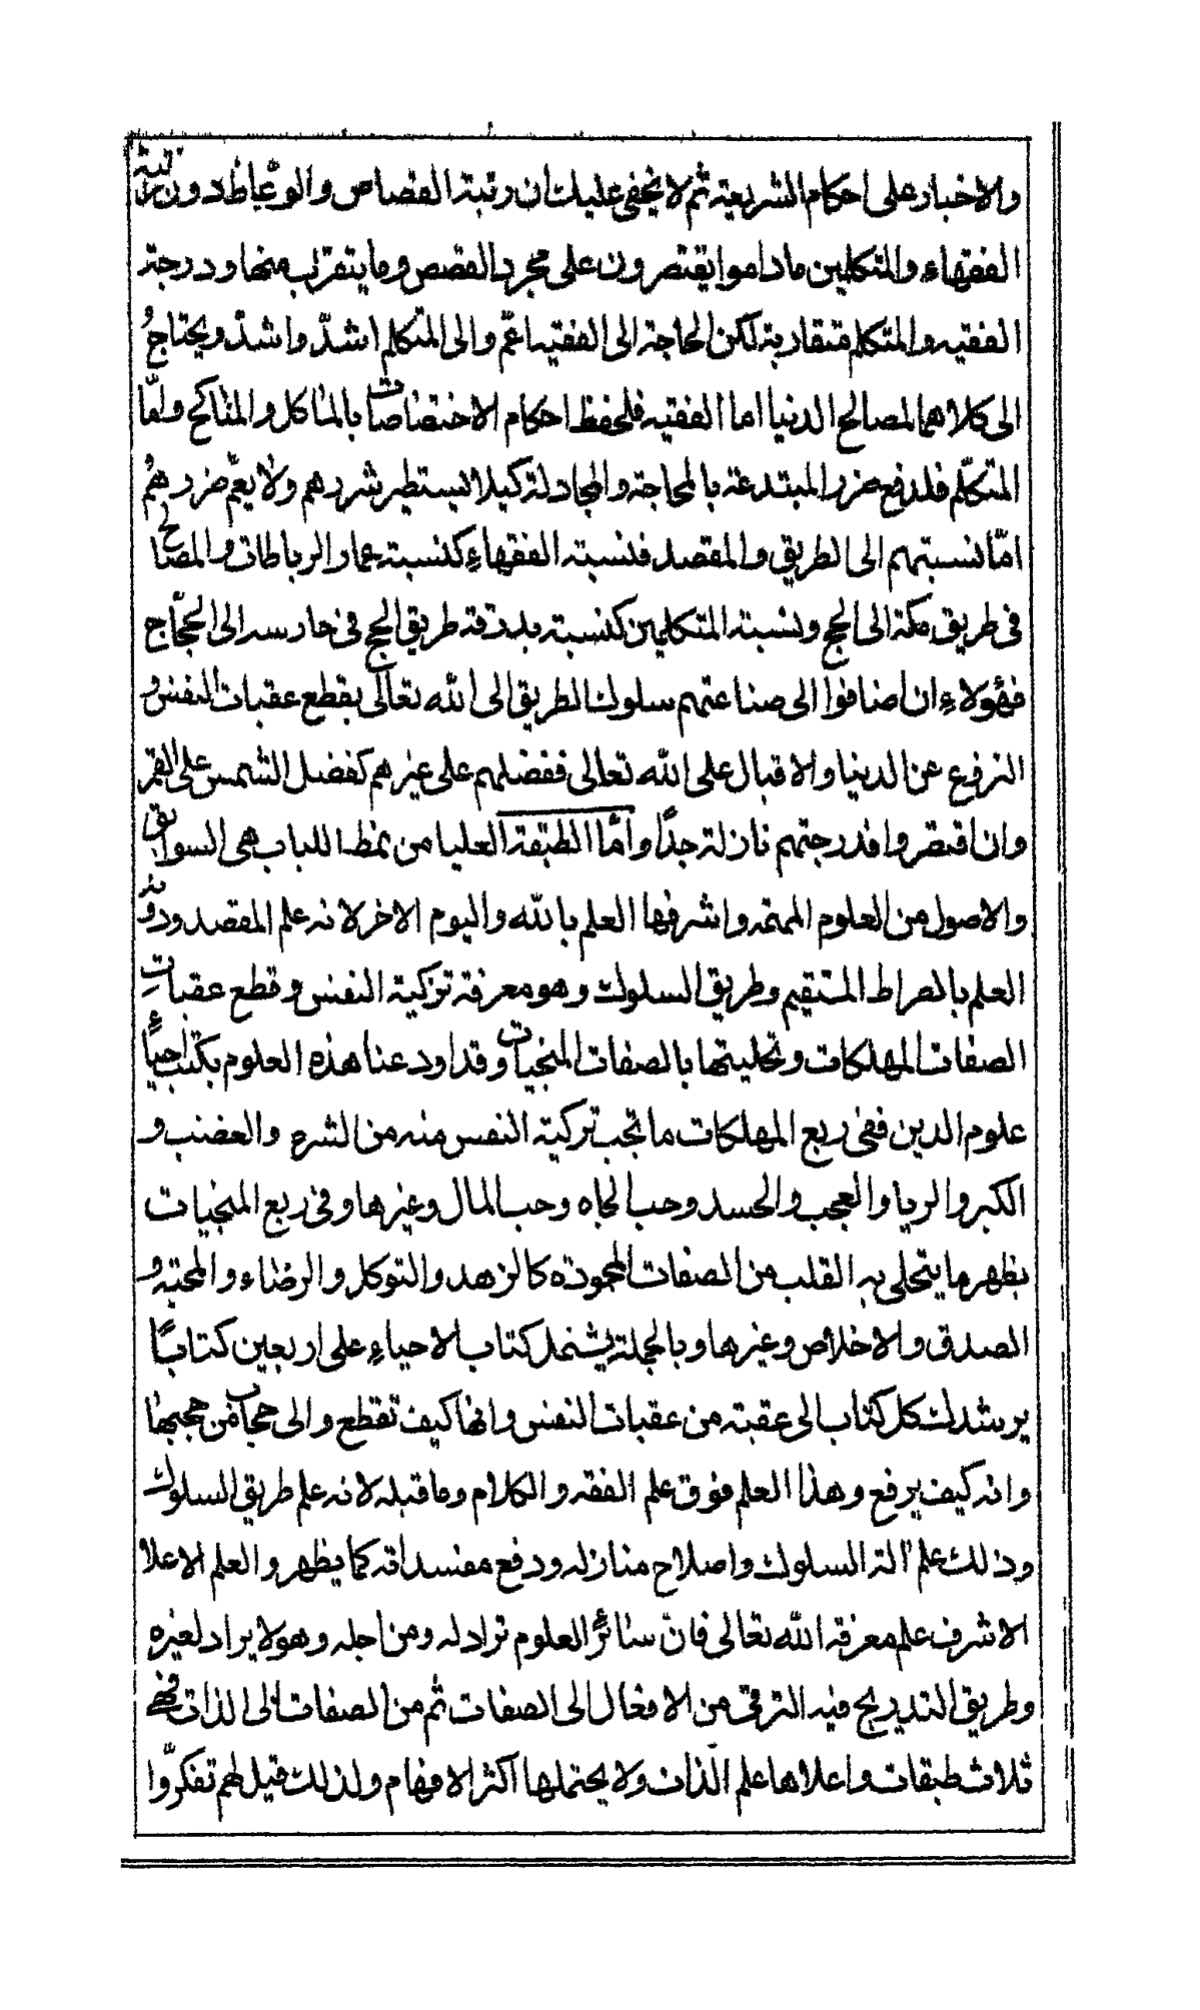 والاخبار على احكام الشريعة ثم لا يخفى عليك ان رتبة القصاص والوعاظ دون رتبة
الفقهاء والمتكلمين ماداموا يقتصرون على مجرد القصص وما يتقرب منها ودرجة
الفقيه والمتكلم متقاربة لكن الحاجة الى الفقيه اعمّ والى المتكلم اشدّ واشدّ ويحتاجُ
الى كلاهما لمصالح الدنيا اما الفقيه فلحفظ احكام الاختصاصات بالماكل والمناكح وامّا
المتكلّم فلدفع ضرر المبتدعة بالمحاجة والمجادلة كيلا يستطير شررهم ولا يعمّ ضررهُم
امّا نسبتهم الى الطريق والمقصد فنسبة الفقهاءِ كنسبة عمار الرباطات والمصالح
فى طريق مكة الى الحج ونسبة المتكلمين كنسبة بدرقة طريق الحج فى حارسه الى الحجّاج
فهؤلاءِ ان اضافوا الى صناعتهم سلوك الطريق الى الله تعالى بقطع عقبات النفس و
النزوع عن الدنيا والاقبال على الله تعالى ففضلهم على غيرهم كفضل الشمس على القمر
وان اقتصروا فدرجتهم نازلة جدًّا وامّا الطبقة العليا من نمط اللباب هى السوابق
والاصول من العلوم المهمة واشرفها العلم بالله واليوم الاخر لانه علم المقصد ودونه
العلم بالصراط المستقيم وطريق السلوك وهو معرفة تزكية النفس وقطع عقباتِ
الصفات المهلكات وتحليتها بالصفات المنجيات وقد اودعنا هذه العلوم بكتب احياءِ
علوم الدين ففى ربع المهلكات ما تجب تزكية النفس منه من الشره والغضب و
الكبر والريا والعجب والحسد وحب الجاه وحب المال وغيرها وفى ربع المنجيات
يظهر ما يتحلى به القلب من الصفات المحمودة كالزهد والتوكل والرضاء والمحبة و
الصدق والاخلاص وغيرها وبالجملة يشتمل كتاب الاحياءِ على اربعين كتابًا
يرشدك كل كتاب الى عقبة من عقبات النفس وانها كيف تقطع والى حجاب من حجبها
وانه كيف يرفع وهذا العلم فوق علم الفقه والكلام وما قبله لانه علم طريق السلوك
وذلك علم آلة السلوك واصلاح منازله ودفع مفسداته كما يظهر والعلم الاعلا
الاشرف علم معرفة الله تعالى فانّ سائرُ العلوم تراد له ومن اجله وهو لا يراد لغيره
وطريق التدريج فيه الترقى من الافعال الى الصفات ثم من الصفات الى الذات فهى
ثلاث طبقات واعلاها علم الذات ولا يحتملها اكثر الافهام ولذلك قيل لهم تفكرّوا